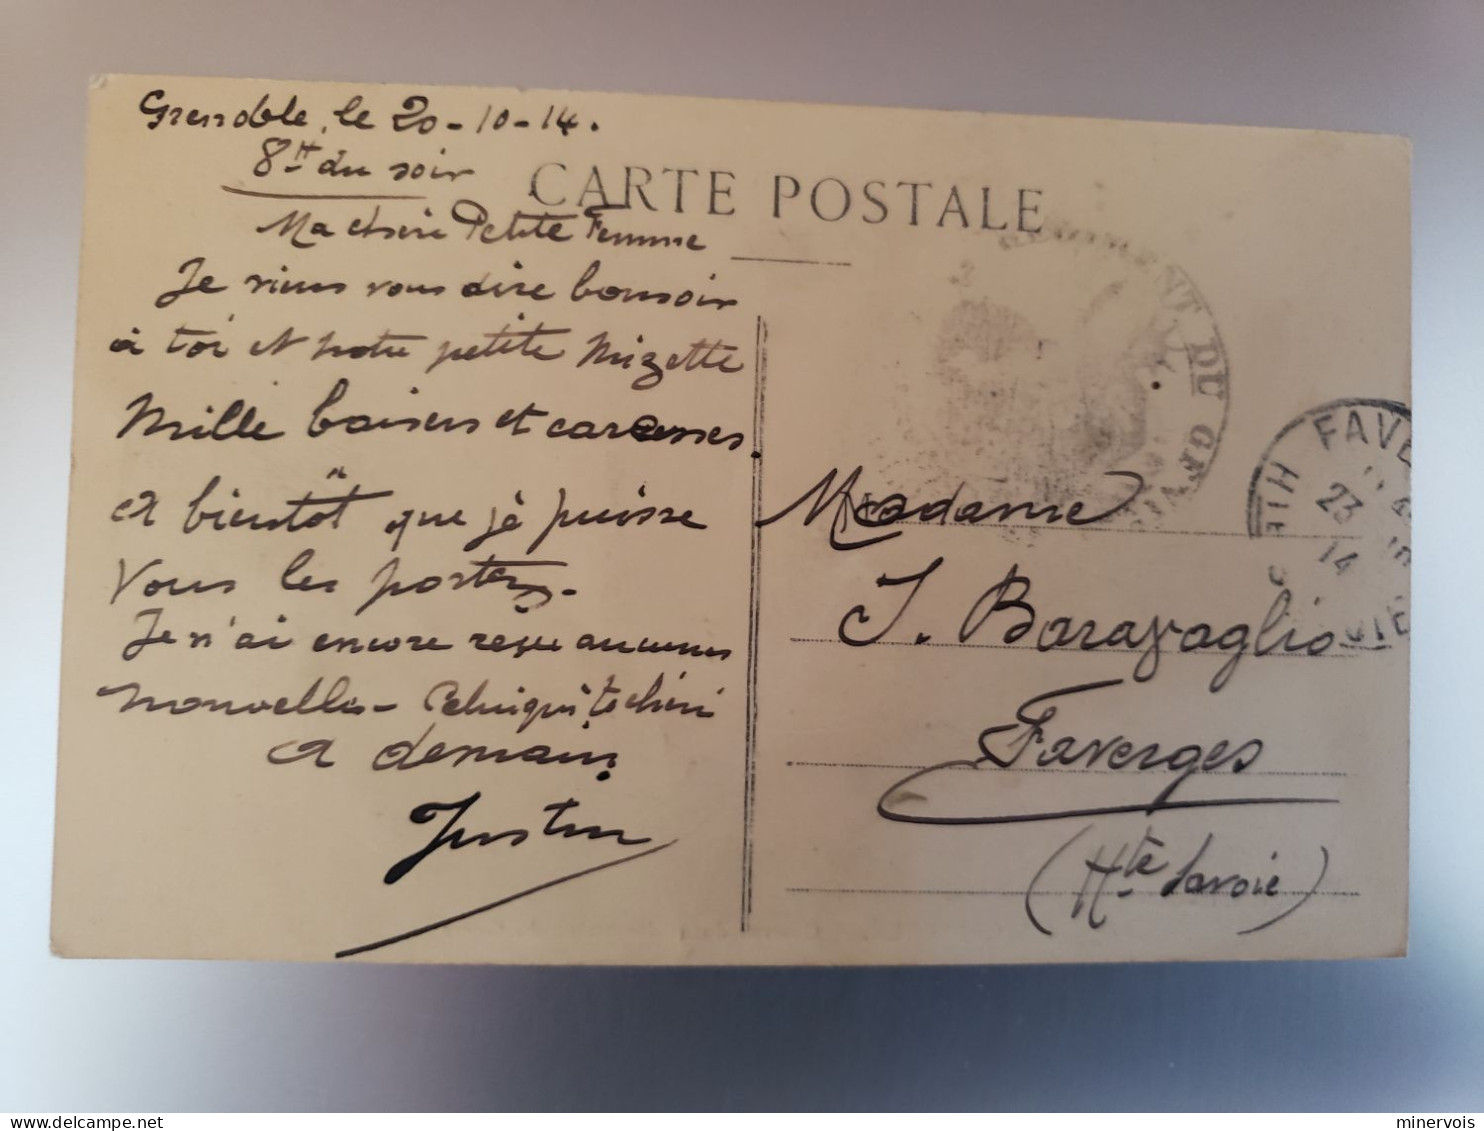 Grenoble, le 20-10-14.
8H du soir
CARTE POSTALE
Ma chère Petite Femme
Je viens vous dire bonsoir
à toi et notre petite Mizette
Mille baisers et caresses.
A bientôt que je puisse
Vous les porter.
Je n'ai encore reçu aucunes
nouvelles -
A demain.
Justin
REGIMENT DU GENIE
FAVE
23
14
Hte
Madame
J. Baravaglio
Faverges
(Hte Savoie)
minervois